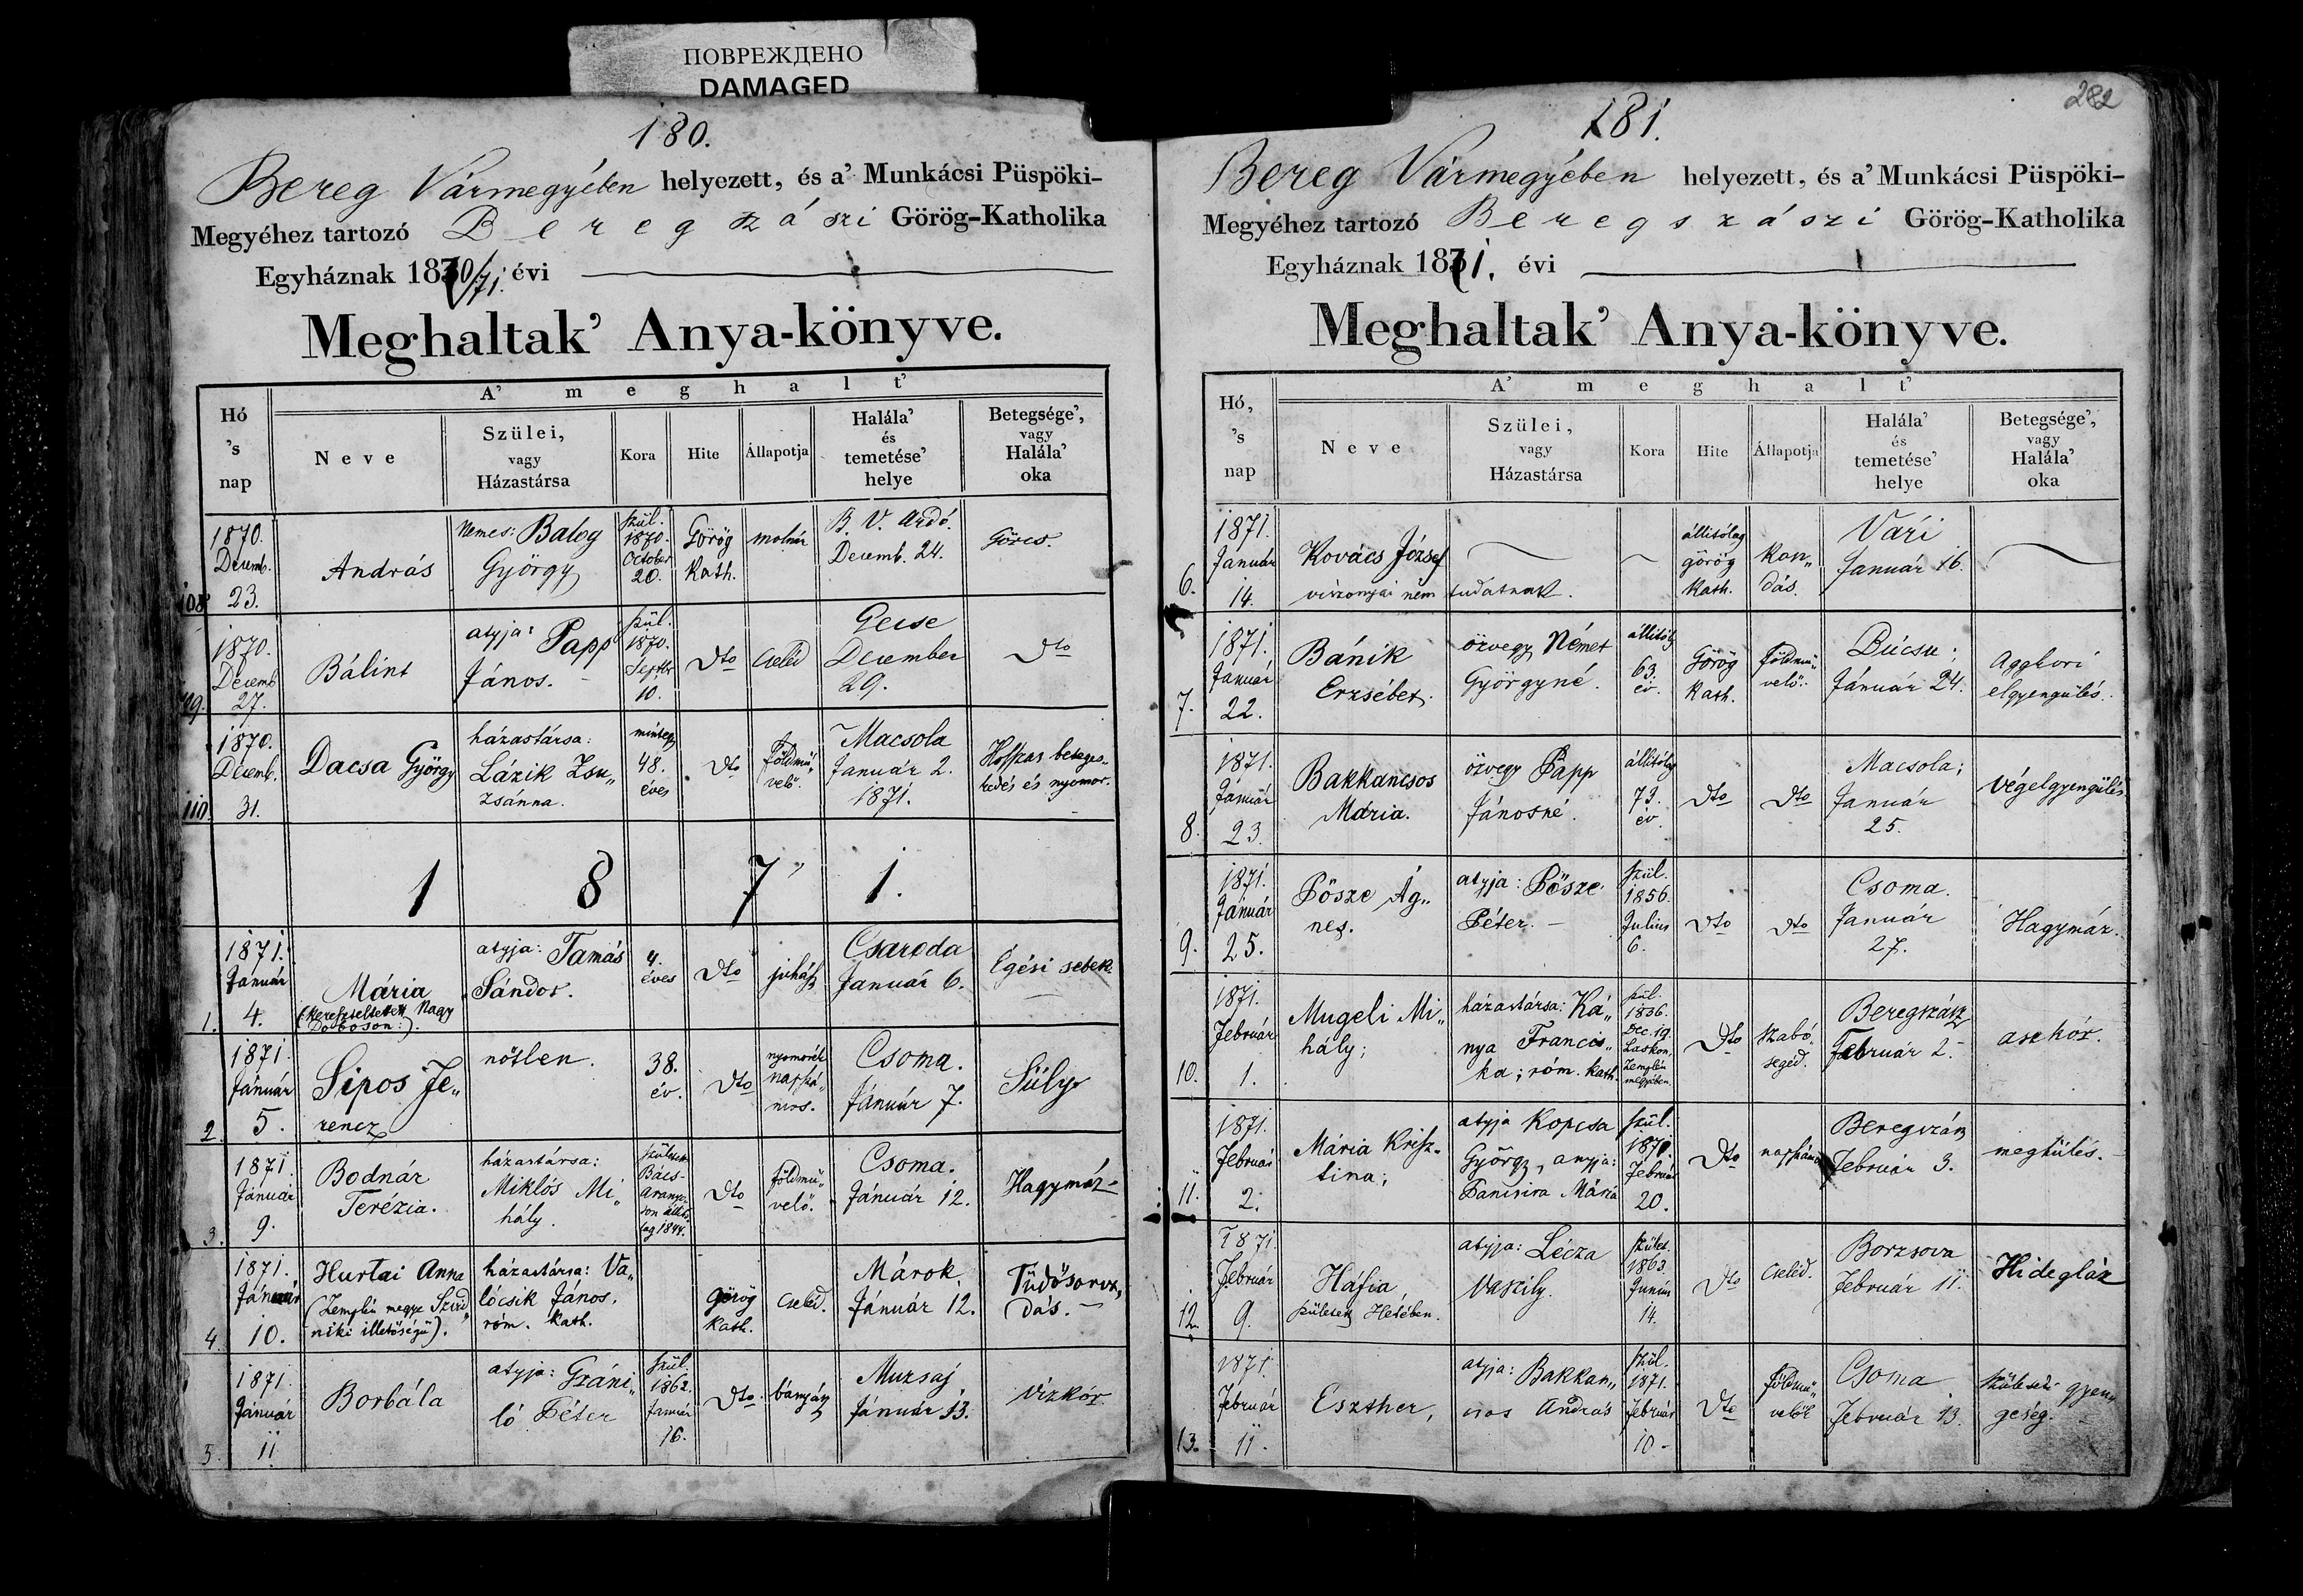 ПОВРЕЖДЕНО
DAMAGED
180.
Bereg Vármegyében helyezett, és a' Munkácsi Püspöki-
Megyéhez tartozó Beregszászi Görög-Katholika
Egyháznak 1870/71. évi
Meghaltak' Anya-könyve.
A' meghalt'
Hó 's nap
Neve
Szülei, vagy Házastársa
Kora
Hite
Állapotja
Halála' és temetése' helye
Betegsége', vagy Halála' oka
108
1870. Decemb. 23.
András
Nemes: Balog György
szül. 1870. October 20.
Görög Kath.
molnár
B. V. Ardó. Decemb. 24.
Görcs.
109.
1870. Decemb 27.
Bálint
atyja: Papp János.
szül. 1870. Septbr 10.
Dto
cseléd
Gecse December 29.
Dto
110
1870. Decemb. 31.
Dacsa György
házastársa: Lázik Zsu„ zsánna.
mintegy 48. éves
Dto
földmű„ velő.
Macsola Január 2. 1871.
Hosszas beteges„ kedés és nyomor.
1871.
1.
1871. Január 4.
Mária (: kereszteltetett Nagy Doboson:).
atyja: Tamás Sándor.
4. éves
Dto
juhász
Csaroda Január 6.
Égési sebek.
2.
1871. Január 5.
Sipos Fe„ rencz
nőtlen.
38. év.
Dto
nyomorék napszá„ mos.
Csoma. Január 7.
Süly
3.
1871. Január 9.
Bodnár Terézia.
házastársa: Miklós Mi„ hály.
Bács- Aranyo- son állító- lag 1844.
Dto
földmű„ velő.
Csoma. Január 12.
Hagymáz
4.
1871. Január 10.
Hurtai Anna (Zemplén megye niki illetőségű).
házastársa: Va„ lócsik János, róm. kath.
Görög Kath.
cseléd.
Márok, Január 12.
Tüdősorva„ dás.
5.
1871. Január 11.
Borbála
atyja: Gráni„ ló Péter
szül. 1862. Január 16.
Dto.
bányász
Muzsaj Január 13.
vízkór
282
181.
Bereg Vármegyében helyezett, és a' Munkácsi Püspöki-
Megyéhez tartozó Beregszászi Görög-Katholika
Egyháznak 1871. évi
Meghaltak' Anya-könyve.
A' meghalt'
Hó, 's nap
Neve
Szülei, vagy Házastársa
Kora
Hite
Állapotja
Halála' és temetése' helye
Betegsége', vagy Halála' oka
6.
1871. Január 14.
Kovács József viszonyai nem tudatnak.
állitólag görög Kath.
Kon„ dás.
Vári Január 16.
7.
1871. Január 22.
Bánik Erzsébet.
özvegy Német Györgyné.
állitólag 63. év.
Görög Kath.
földmű„ velő.
Búcsu; Január 24.
Aggkori elgyengülés.
8.
1871. Január 23.
Bakkancsos Mária.
özvegy Papp Jánosné.
állitólag 73. év.
Dto
Dto
Macsola; Január 25.
Végelgyengülés
9.
1871. Január 25.
Pősze Ág„ nes.
atyja: Pősze Péter.
szül. 1856. Julius 6.
Dto
Dto
Csoma. Január 27.
Hagymáz.
10.
1871. Február 1.
Mugeli Mi„ hály;
házastársa: Ká„ nya Francis„ ka; róm. kath.
szül. 1836. Dec. 19. Laskon, Zemplén megyében.
Dto
szabó segéd.
Beregszász Február 2.
aszkór.
11.
1871. Február 2.
Mária Krisz„ tina;
atyja Kopcsa György, anyja: Mária
szül. 1870. Február 20.
Dto
napszámos
Beregszász Február 3.
meghülés.
12.
1871. Február 9.
Háfia, született Hetében.
atyja: Lécza Vaszily.
szület. 1863 Junius 14.
Dto
cseléd.
Borzsova Február 11.
Hidegláz
13.
1871. Február 11.
Eszther,
atyja: Bakkan„ csos András
szül. 1871. Február 10.
Dto
földmű„ velő
Csoma Február 13.
születési gyen„ geség.